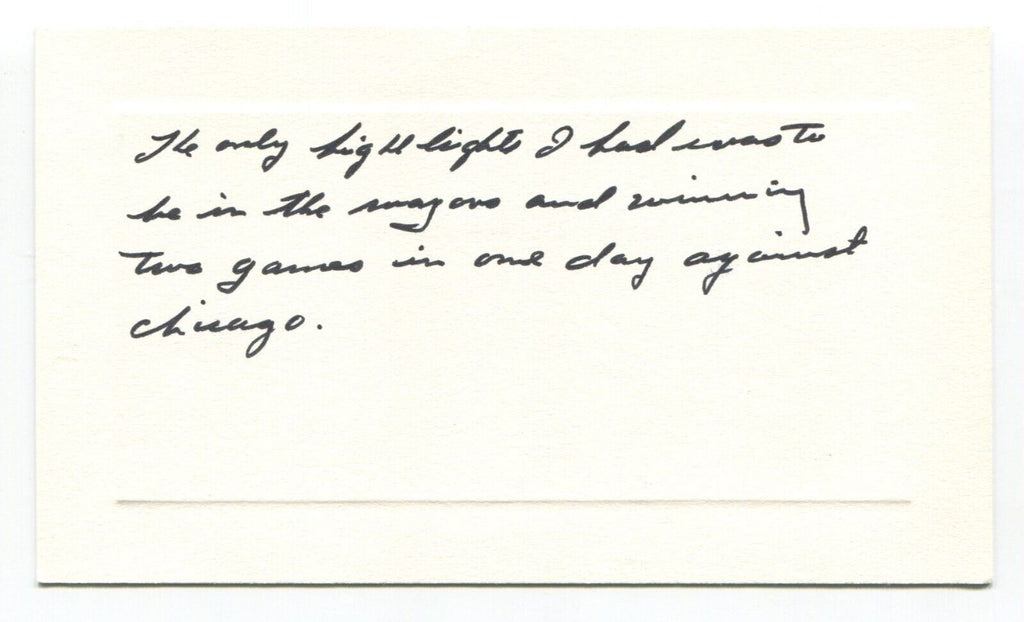 The only highlights I had was to
be in the magors and winning
two games in one day against
chicago.